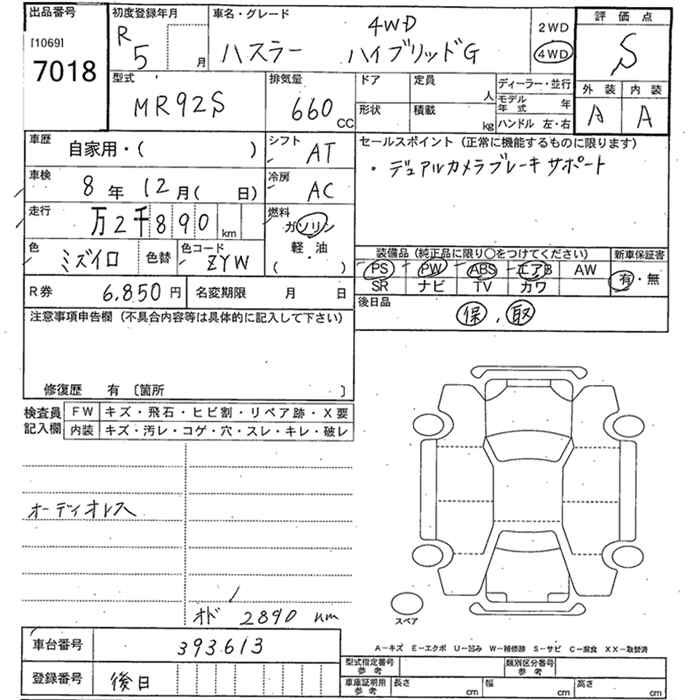 出品番号
[1069]
7018
初度登録年月
R
5 月
車名・グレード
4WD
ハスラー ハイブリッドG
2WD
4WD
評価点
S
外装 内装
A A
型式
MR92S
排気量
660 CC
ドア 定員
人
形状 積載
kg
ディーラー・並行
モデル年式 年
ハンドル 左・右
車歴 自家用・( )
シフト AT
車検 8年12月( 日)
冷房 AC
走行 万2千890 km
燃料
ガソリン
軽・油
( )
色 ミズイロ 色替 色コード ZYW
セールスポイント(正常に機能するものに限ります)
・デュアルカメラブレーキサポート
装備品(純正品に限り○をつけてください) 新車保証書
PS PW ABS エアB AW 有・無
SR ナビ TV カワ
R券 6,850円 名変期限 月 日
後日品
保、取
注意事項申告欄(不具合内容等は具体的に記入して下さい)
修復歴 有〔箇所 〕
検査員記入欄
FW キズ・飛石・ヒビ割・リペア跡・X要
内装 キズ・汚レ・コゲ・穴・スレ・キレ・破レ
オーディオレス
オド 2890 km
スペア
A−キズ E−エクボ U−凹み W−補修跡 S−サビ C−腐食 XX−取替済
車台番号 393613
登録番号 後日
型式指定番号 参考
類別区分番号 参考
車庫証明用 参考 長さ cm 幅 cm 高さ cm